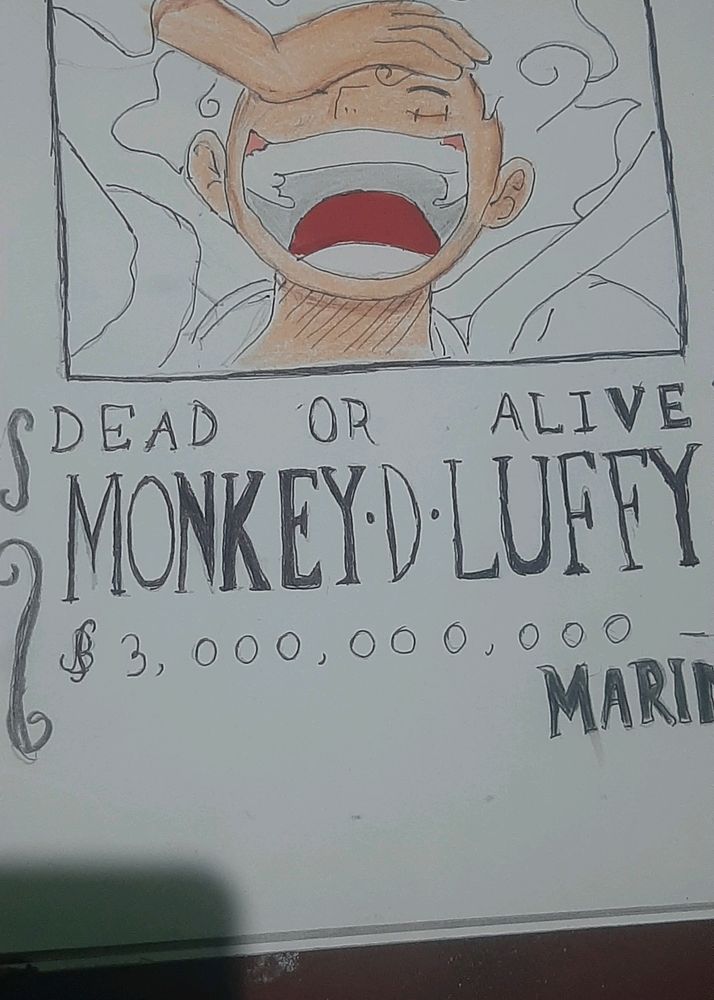 DEAD OR ALIVE
MONKEY·D·LUFFY
฿ 3,000,000,000 —
MARIN